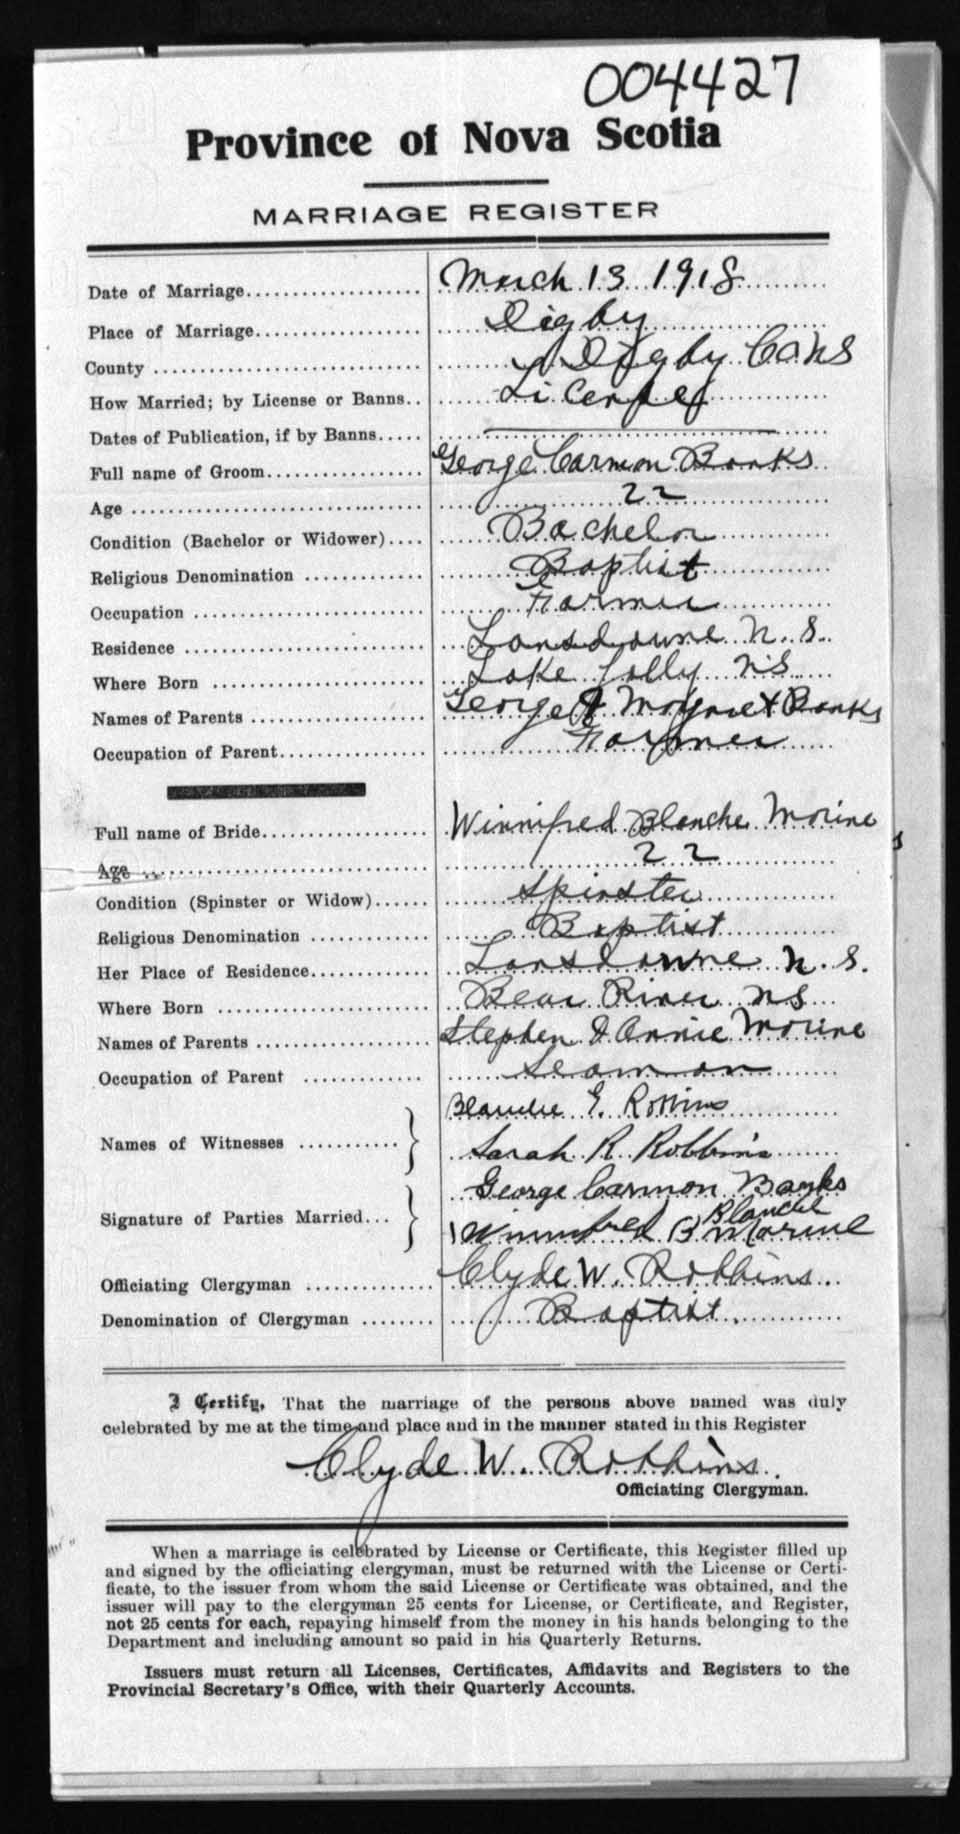 004427
Province of Nova Scotia
MARRIAGE REGISTER
Date of Marriage March 13 1918
Place of Marriage Digby
County Digby Co NS
How Married; by License or Banns License
Dates of Publication, if by Banns
Full name of Groom George Carmon Banks
Age 22
Condition (Bachelor or Widower) Bachelor
Religious Denomination Baptist
Occupation Farmer
Residence Lansdowne N. S.
Where Born Lake Jolly NS
Names of Parents George & Margaret Banks
Occupation of Parent Farmer
Full name of Bride Winnifred Blanche Morine
Age 22
Condition (Spinster or Widow) Spinster
Religious Denomination Baptist
Her Place of Residence Lansdowne N. S.
Where Born Bear River NS
Names of Parents Stephen & Annie Morine
Occupation of Parent Seaman
Names of Witnesses Blanche E. Robbins
Sarah R. Robbins
Signature of Parties Married George Carmon Banks
Winnifred B Blanche Morine
Officiating Clergyman Clyde W. Robbins
Denomination of Clergyman Baptist.
I Certify, That the marriage of the persons above named was duly
celebrated by me at the time and place and in the manner stated in this Register
Clyde W. Robbins.
Officiating Clergyman.
When a marriage is celebrated by License or Certificate, this Register filled up
and signed by the officiating clergyman, must be returned with the License or Certi-
ficate, to the issuer from whom the said License or Certificate was obtained, and the
issuer will pay to the clergyman 25 cents for License, or Certificate, and Register,
not 25 cents for each, repaying himself from the money in his hands belonging to the
Department and including amount so paid in his Quarterly Returns.
Issuers must return all Licenses, Certificates, Affidavits and Registers to the
Provincial Secretary's Office, with their Quarterly Accounts.